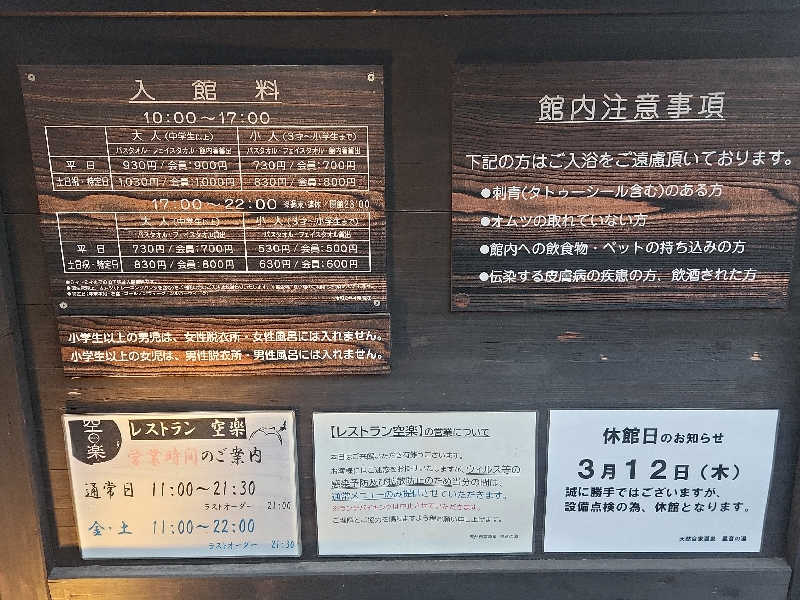 入館料
10:00～17:00
大人(中学生以上) 小人(3才～小学生まで)
バスタオル・フェイスタオル・館内着貸出 バスタオル・フェイスタオル・館内着貸出
平日 930円/会員:900円 730円/会員:700円
土日祝・特定日 1,030円/会員:1,000円 830円/会員:800円
17:00～22:00
大人(中学生以上) 小人(3才～小学生まで)
バスタオル・フェイスタオル貸出 バスタオル・フェイスタオル貸出
平日 730円/会員:700円 530円/会員:500円
土日祝・特定日 830円/会員:800円 630円/会員:600円
小学生以上の男児は、女性脱衣所・女性風呂には入れません。
小学生以上の女児は、男性脱衣所・男性風呂には入れません。
館内注意事項
下記の方はご入浴をご遠慮頂いております。
●刺青(タトゥーシール含む)のある方
●オムツの取れていない方
●館内への飲食物・ペットの持ち込みの方
●伝染する皮膚病の疾患の方、飲酒された方
空の楽
レストラン 空楽
営業時間のご案内
通常日 11:00～21:30
ラストオーダー 21:00
金・土 11:00～22:00
ラストオーダー 21:30
【レストラン空楽】の営業について
本日はご来館いただき有難うございます。
お客様にはご迷惑をお掛けいたしますが、ウイルス等の
感染予防及び拡散防止のため当分の間は、
通常メニューのみ提供とさせていただきます。
休館日のお知らせ
3月12日(木)
誠に勝手ではございますが、
設備点検の為、休館となります。